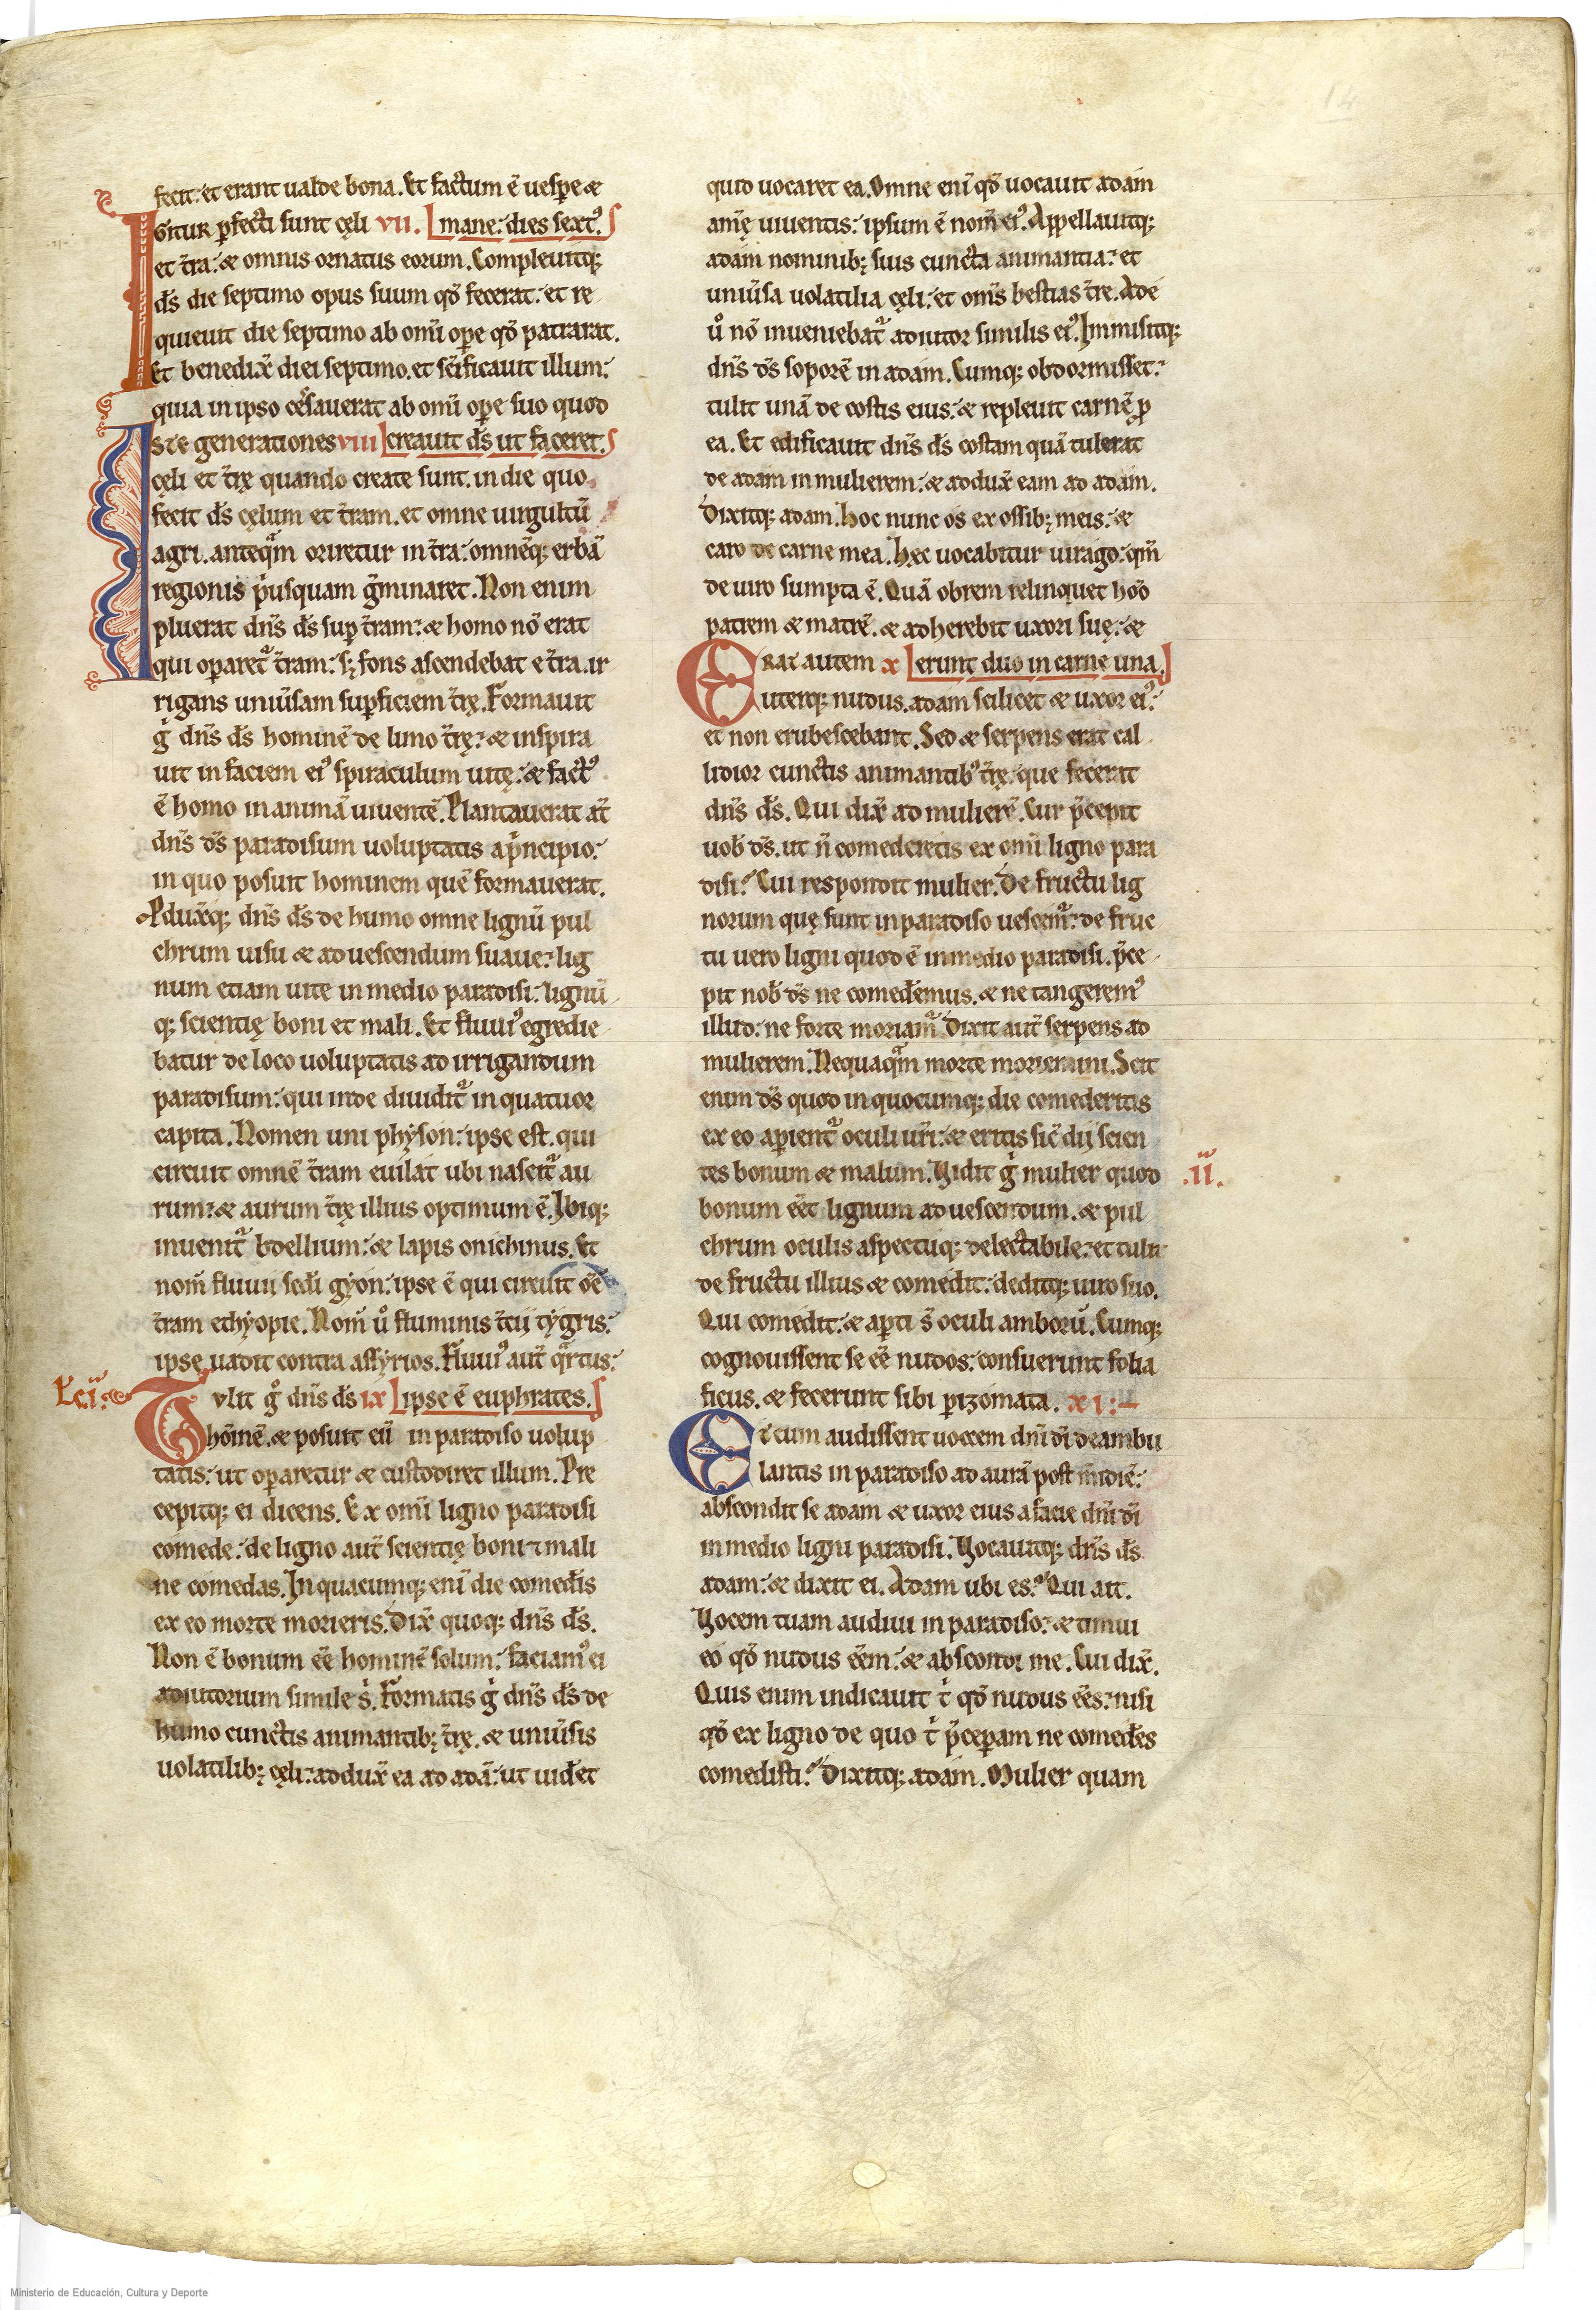 14
fecit: et erant ualde bona. Et factum ē uesꝑe ⁊
IGITUR ꝑfecti sunt cęli VII. mane: dies sextꝰ.
et t̄ra: ⁊ omnis ornatus eorum. Compleuitq;
d̄s die septimo opus suum qd̄ fecerat: et re
quieuit die septimo ab om̄i oꝑe qd̄ patrarat.
Et benedix̄ diei septimo. et sc̄ificauit illum:
quia in ipso ceſsauerat ab om̄i oꝑe suo quod
Iste generationes VIII creauit d̄s ut faceret.
cęli et t̄rę quando create sunt. in die quo
fecit d̄s cęlum et t̄ram. et omne uirgultū
agri. anteqᵃm oriretur in t̄ra: omnēq; erbā
regionis pⁱusquam ḡminaret. Non enim
pluerat dn̄s d̄s suꝑ t̄ram: ⁊ homo nō erat
qui oꝑaret᷑ t̄ram: sꝫ fons ascendebat e t̄ra. ir
rigans uniūsam suꝑficiem t̄rę. Formauit
gⁱ dn̄s d̄s hominē de limo t̄rę: ⁊ inspira
uit in faciem eiꝰ spiraculum uitę: ⁊ factꝰ
ē homo in animā uiuentē. Plantauerat at̄
dn̄s d̄s paradisum uoluptatis a pⁱncipio:
in quo posuit hominem quē formauerat.
Pdux̄q; dn̄s d̄s de humo omne lignū pul
chrum uisu ⁊ ad uescendum suaue: lig
num etiam uite in medio paradisi: lignū
q; scientię boni et mali. Et fluuiꝰ egredie
batur de loco uoluptatis ad irrigandum
paradisum: qui inde diuidit᷑ in quatuor
capita. Nomen uni physon: ipse est. qui
circuit omnē t̄ram euilat ubi nascit᷑ au
rum: ⁊ aurum t̄rę illius optimum ē. Ibiq;
inuenit᷑ bdellium: ⁊ lapis onichinus. Et
nom̄ fluuii sc̄di gyon: ipse ē qui circuit oē
t̄ram ethyopie. Nom̄ uͦ fluminis t̄cii tygris:
ipse uadit contra assyrios. Fluuiꝰ aut̄ qᵃrtus:
Lcī.
Tvlit gͦ dn̄s d̄s IX ipse ē euphrates.
hōinē. ⁊ posuit eū in paradiso uolup
tatis: ut oꝑaretur ⁊ custodiret illum. Pre
cepitq; ei dicens. Ex om̄i ligno paradisi
comede: de ligno aut̄ scientię boni ⁊ mali
ne comedas. In quacumq; enī die comed̄is
ex eo morte morieris. Dix̄ quoq; dn̄s d̄s.
Non ē bonum eē hominē solum: faciamꝰ ei
adiutorium simile sⁱ. Formatis gⁱ dn̄s d̄s de
humo cunctis animantibꝫ t̄rę. ⁊ uniūsis
uolatilibꝫ cęli: addux̄ ea ad adā: ut uid̄et
quid uocaret ea. Omne enī qd̄ uocauit adam
amę uiuentis: ipsum ē nom̄ eiꝰ. Appellauitq;
adam nominibꝫ suis cuncta animantia: et
uniūsa uolatilia cęli: et om̄s bestias t̄re. Ade
uͦ nō inueniebat᷑ adiutor similis eiꝰ. Immisitq;
dn̄s d̄s soporē in adam. Cumq; obdormisset:
tulit unā de costis eius: ⁊ repleuit carnē ꝓ
ea. Et edificauit dn̄s d̄s costam quā tulerat
de adam in mulierem: ⁊ addux̄ eam ad adam.
Dixitq; adam. Hoc nunc os ex ossibꝫ meis: ⁊
caro de carne mea. Hęc uocabitur uirago: qm̄
de uiro sumpta ē. Quā obrem relinquet hōo
patrem ⁊ matrē. ⁊ adherebit uxori suę: ⁊
ERAt autem X erunt duo in carne una.
uterq; nudus. adam scilicet ⁊ uxor eiꝰ:
et non erubescebant. Sed ⁊ serpens erat cal
lidior cunctis animantibꝰ t̄rę. que fecerat
dn̄s d̄s. Qui dix̄ ad mulierē. Cur p̄cepit
uob̄ d̄s. ut n̄ comederetis ex om̄i ligno para
disi? Cui respondit mulier. De fructu lig
norum quę sunt in paradiso uescem᷑: de fruc
tu uero ligni quod ē in medio paradisi. p̄ce
pit nob̄ d̄s ne comed̄emus. ⁊ ne tangeremꝰ
illud: ne forte moriam᷑. Dixit aut̄ serpens ad
mulierem. Nequaqᵃm morte moriemini. Scit
enim d̄s quod in quocumq; die comederitis
ex eo aꝑient᷑ oculi ur̄i: ⁊ eritis sic̄ dij scien
tes bonum ⁊ malum. Uidit gⁱ mulier quod
.II.
bonum eēt lignum ad uescendum. ⁊ pul
chrum oculis aspectuq; delectabile: et tulit
de fructu illius ⁊ comedit: deditq; uiro suo.
Qui comedit: ⁊ aꝑti s̄ oculi amborū. Cumq;
cognouissent se eē nudos: consuerunt folia
ficus. ⁊ fecerunt sibi ꝑizomata. XI:
Et cum audissent uocem dn̄i dī deambu
lantis in paradiso ad aurā post m̄idiē:
abscondit se adam ⁊ uxor eius a facie dn̄i dī
in medio ligni paradisi. Uocauitq; dn̄s d̄s
adam: ⁊ dixit ei. Adam ubi es? Qui ait.
Uocem tuam audiui in paradiso: ⁊ timui
eo qd̄ nudus eēm: ⁊ abscondi me. Cui dix̄.
Quis enim indicauit tⁱ qd̄ nudus eēs: nisi
qd̄ ex ligno de quo tⁱ p̄ceꝑam ne comed̄es
comedisti? Dixitq; adam. Mulier quam
Ministerio de Educación, Cultura y Deporte